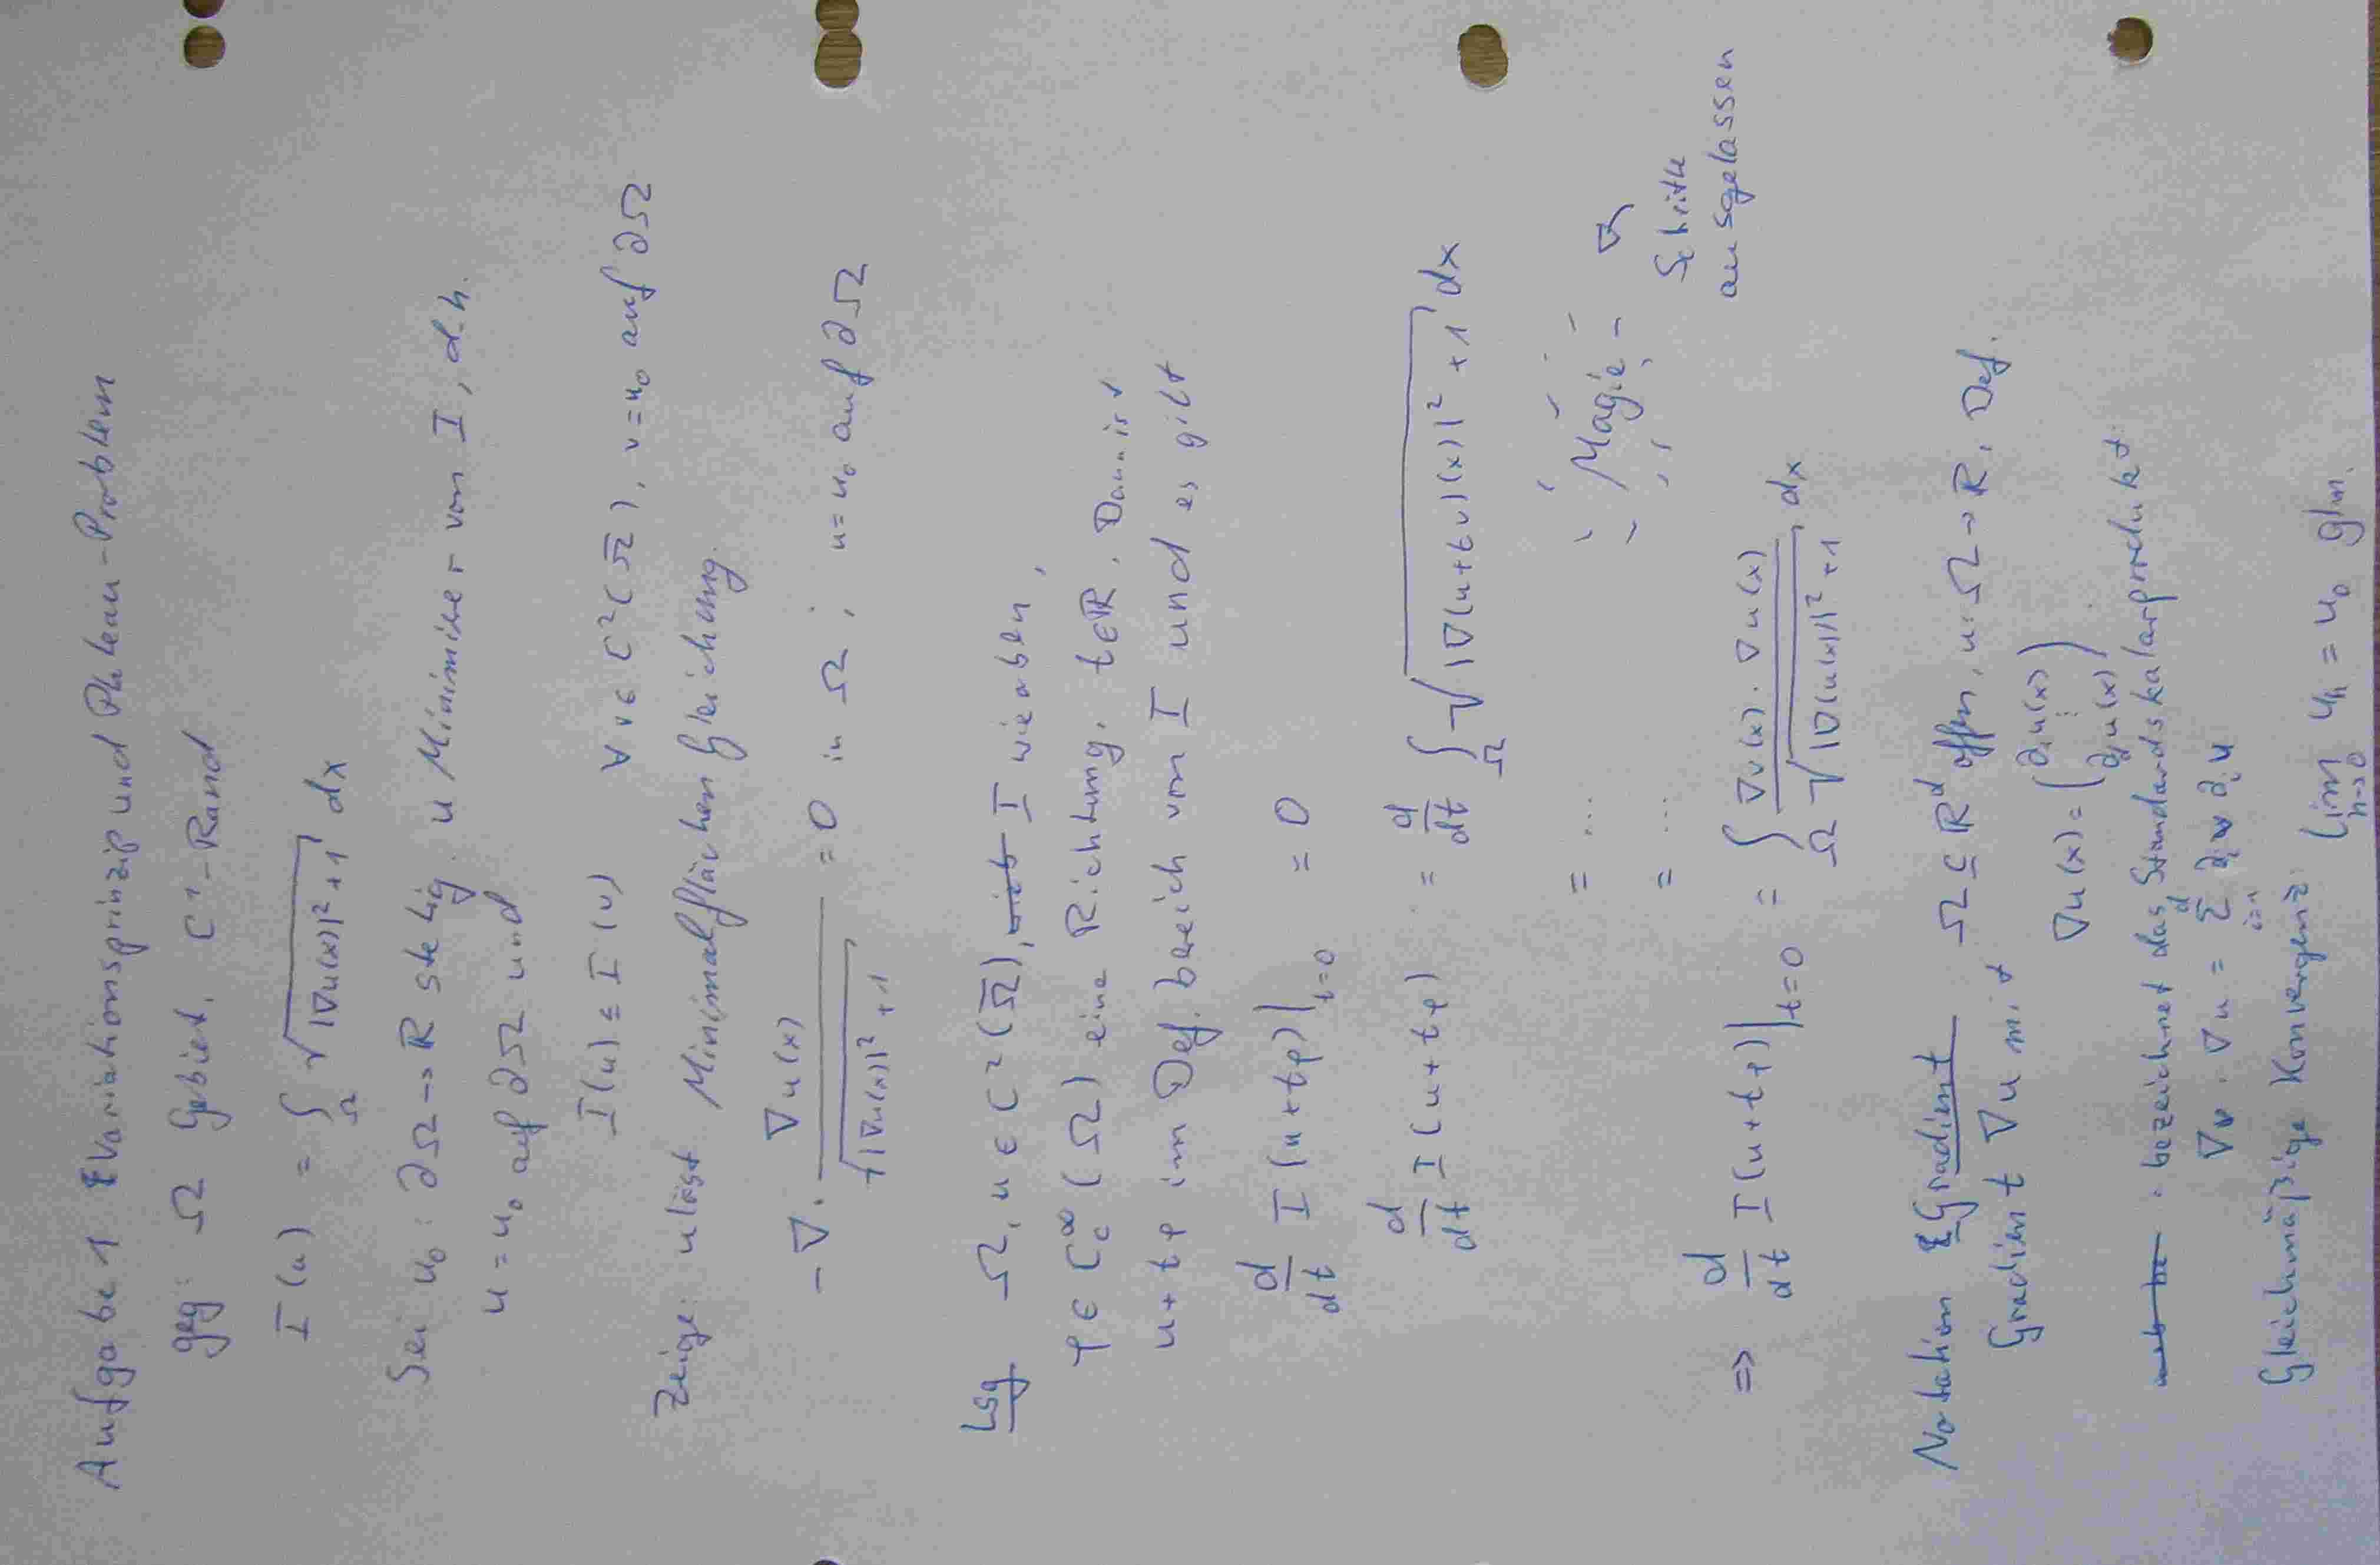 Aufgabe 1 Variationsprinzip und Plateau-Problem
geg: Ω Gebiet, C¹-Rand
I(u) = ∫_Ω √(|∇u(x)|²+1) dx
Sei u₀: ∂Ω → ℝ stetig. u Minimierer von I, d.h.
u = u₀ auf ∂Ω und
I(u) ≤ I(v) ∀ v ∈ C²(Ω̅), v = u₀ auf ∂Ω
Zeige: u löst Minimalflächen Gleichung.
-∇· ∇u(x) / √(|∇u(x)|²+1) = 0 in Ω; u = u₀ auf ∂Ω
Lsg Ω, u ∈ C²(Ω̅), I wie oben,
φ ∈ C_c^∞(Ω) eine Richtung, t∈ℝ. Dann ist
u + tφ im Def. bereich von I und es gilt
d/dt I(u+tφ)|_{t=0} = 0
d/dt I(u+tφ) = d/dt ∫_Ω √(|∇(u+tv)(x)|²+1) dx
= ... Magie
= ... Schritte
ausgelassen
⇒ d/dt I(u+tφ)|_{t=0} = ∫_Ω ∇v(x)·∇u(x) / √(|∇(u(x))|²+1) dx
Notation Gradient Ω ⊆ ℝ^d offen, u: Ω → ℝ, Def.
Gradient ∇u mit
∇u(x) = (∂₁u(x) ⋮ ∂_d u(x))
· bezeichnet das Standardskalarprodukt:
∇v · ∇u = Σ_{i=1}^d ∂_i v ∂_i u
Gleichmäßige Konvergenz: lim_{h→0} u_h = u₀ glm.